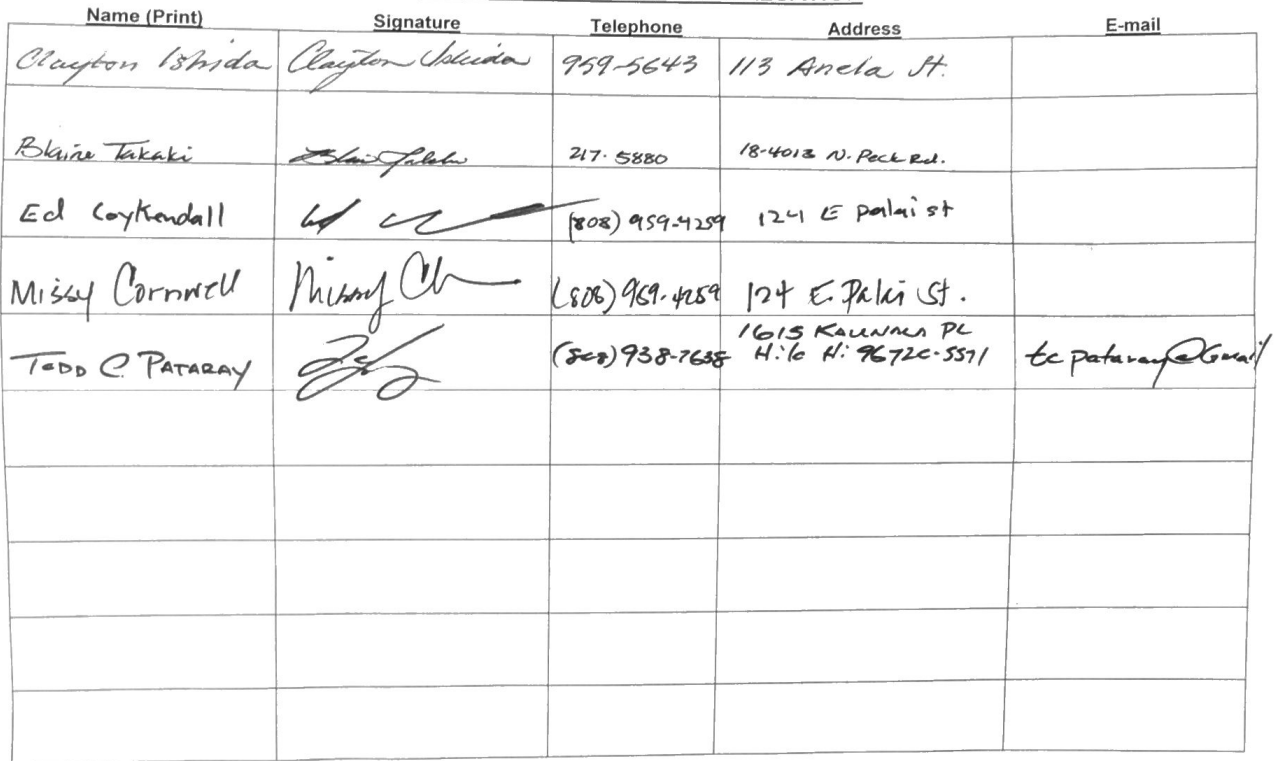 Name (Print) Signature Telephone Address E-mail
Clayton Ishida Clayton Ishida 959-5643 113 Anela St.
Blaine Takaki 217.5880 18-4013 N. Peck Rd.
Ed Coykendall (808) 959-4259 124 E palai st
Missy Cornwell Missy (808) 959.4259 124 E. Palai St.
1615 PL
TODD C. PATARAY (808) 938-7638 Hilo Hi 96720-5571 tcpataray@Gmail